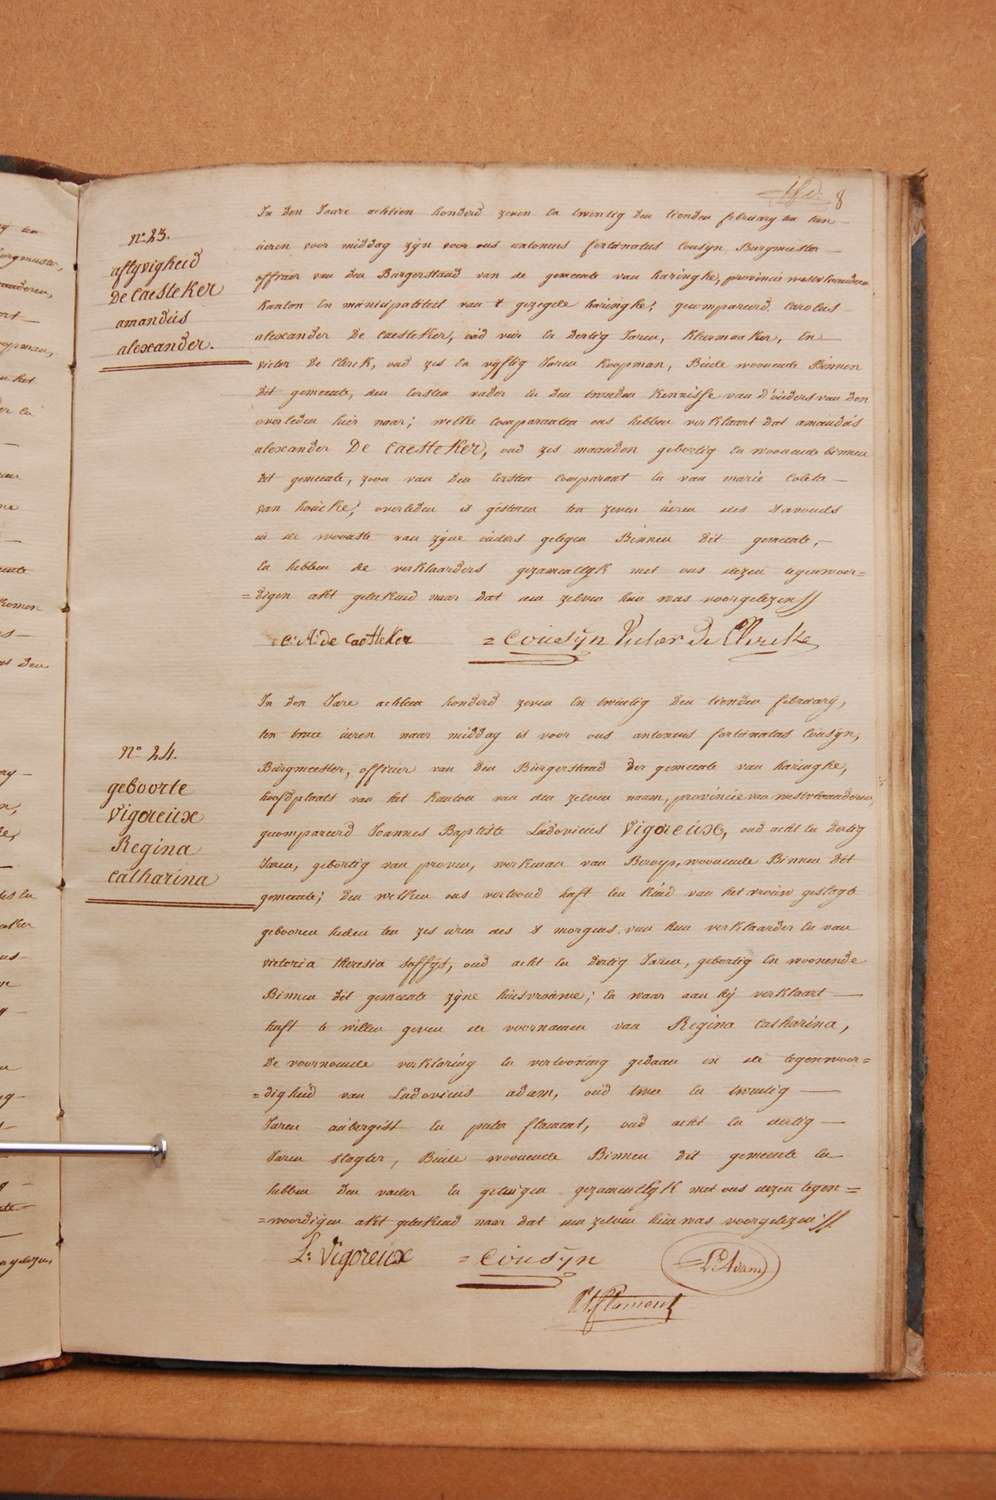 8
n.º 23.
aflyvigheid
De Caesteker
amandus
alexander.
In den Jaere achtien honderd zeven en twintig den tienden february ten tien
ueren voor middag zijn voor ons antonius fortunatus Cousÿn Burgmeester
officier van den Burgerstaad van de gemeente van haringhe, provincie westvlaanderen
kanton en municipaliteit van 't gezegde haringhe; gecompareerd Carolus
alexander De Caesteker, oud vier en dertig Jaren, Kleermaker, en
victor De Clerck, oud zes en vyftig Jaren koopman, Beide woonende Binnen
dit gemeente, den eersten vader en den tweeden kennisse van d'ouders van den
overleden hier naer; welke comparanten ons hebben verklaart dat amandus
alexander De Caesteker, oud zes maanden gebortig en woonende binnen
dit gemeente, zoon van den eersten comparant en van marie coleta
van houcke; overleden is gisteren ten zeven ueren des s'avonds
in de woonste van zijne ouders gelegen Binnen dit gemeente,
En hebben de verklaarders gezamentlyk met ons dezen tegenwoor=
=digen akt geteekend naer dat aen zelven hun was voorgelezen //
C: A: de Caesteker = Cousÿn Victor De Clercke
n.º 24.
geboorte
Vigoreux
Regina
catharina
In den Jare achtien honderd zeven en twintig den tienden february,
ten twee ueren naer middag is voor ons antonius fortunatus Cousÿn,
Burgmeester, officier van den Burgerstaad der gemeente van haringhe,
hoofdplaats van het kanton van den zelven naam, provincie van westvlaanderen,
gecompareerd Joannes Baptiste Ludovicus Vigoreux, oud acht en dertig
Jaren, gebortig van proven, werkman van Beroep, woonende Binnen dit
gemeente; den welken ons vertoond heeft een kind van het vrouw geslagte
gebooren heden ten zes uren des 's morgens van hun verklaarder en van
victoria theresia soffys, oud acht en dertig Jaren, gebortig en woonende
Binnen dit gemeente zijne huisvrouwe; en waer aen hij verklaart
heeft te willen geven de voornamen van Regina Catharina,
De voornoemde verklaring en vertooning gedaan in de tegenwoor=
=digheid van Ludovicus adam, oud twee en twintig
Jaren aubergist en pieter flament, oud acht en dertig
Jaren slagter, Beide woonende Binnen dit gemeente en
hebben den vader en getuigen gezamentlyk met ons dezen tegen=
=woordigen akt geteekend naer dat aen zelven hun was voorgelezen //
L: Vigoreux = Cousÿn = L: Adam
P: flament